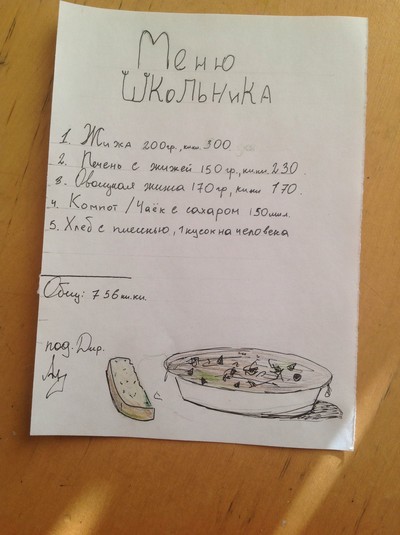 Меню
школьника
1. Жижа 200гр., ккал. 300
2. Печень с жижей 150 гр., ккал. 230.
3. Овощная жижа 170гр, ккал 170.
4. Компот / Чаёк с сахаром 150мл.
5. Хлеб с плесенью, 1 кусок на человека
Общ: 756 ки.ки.
под. Дир.